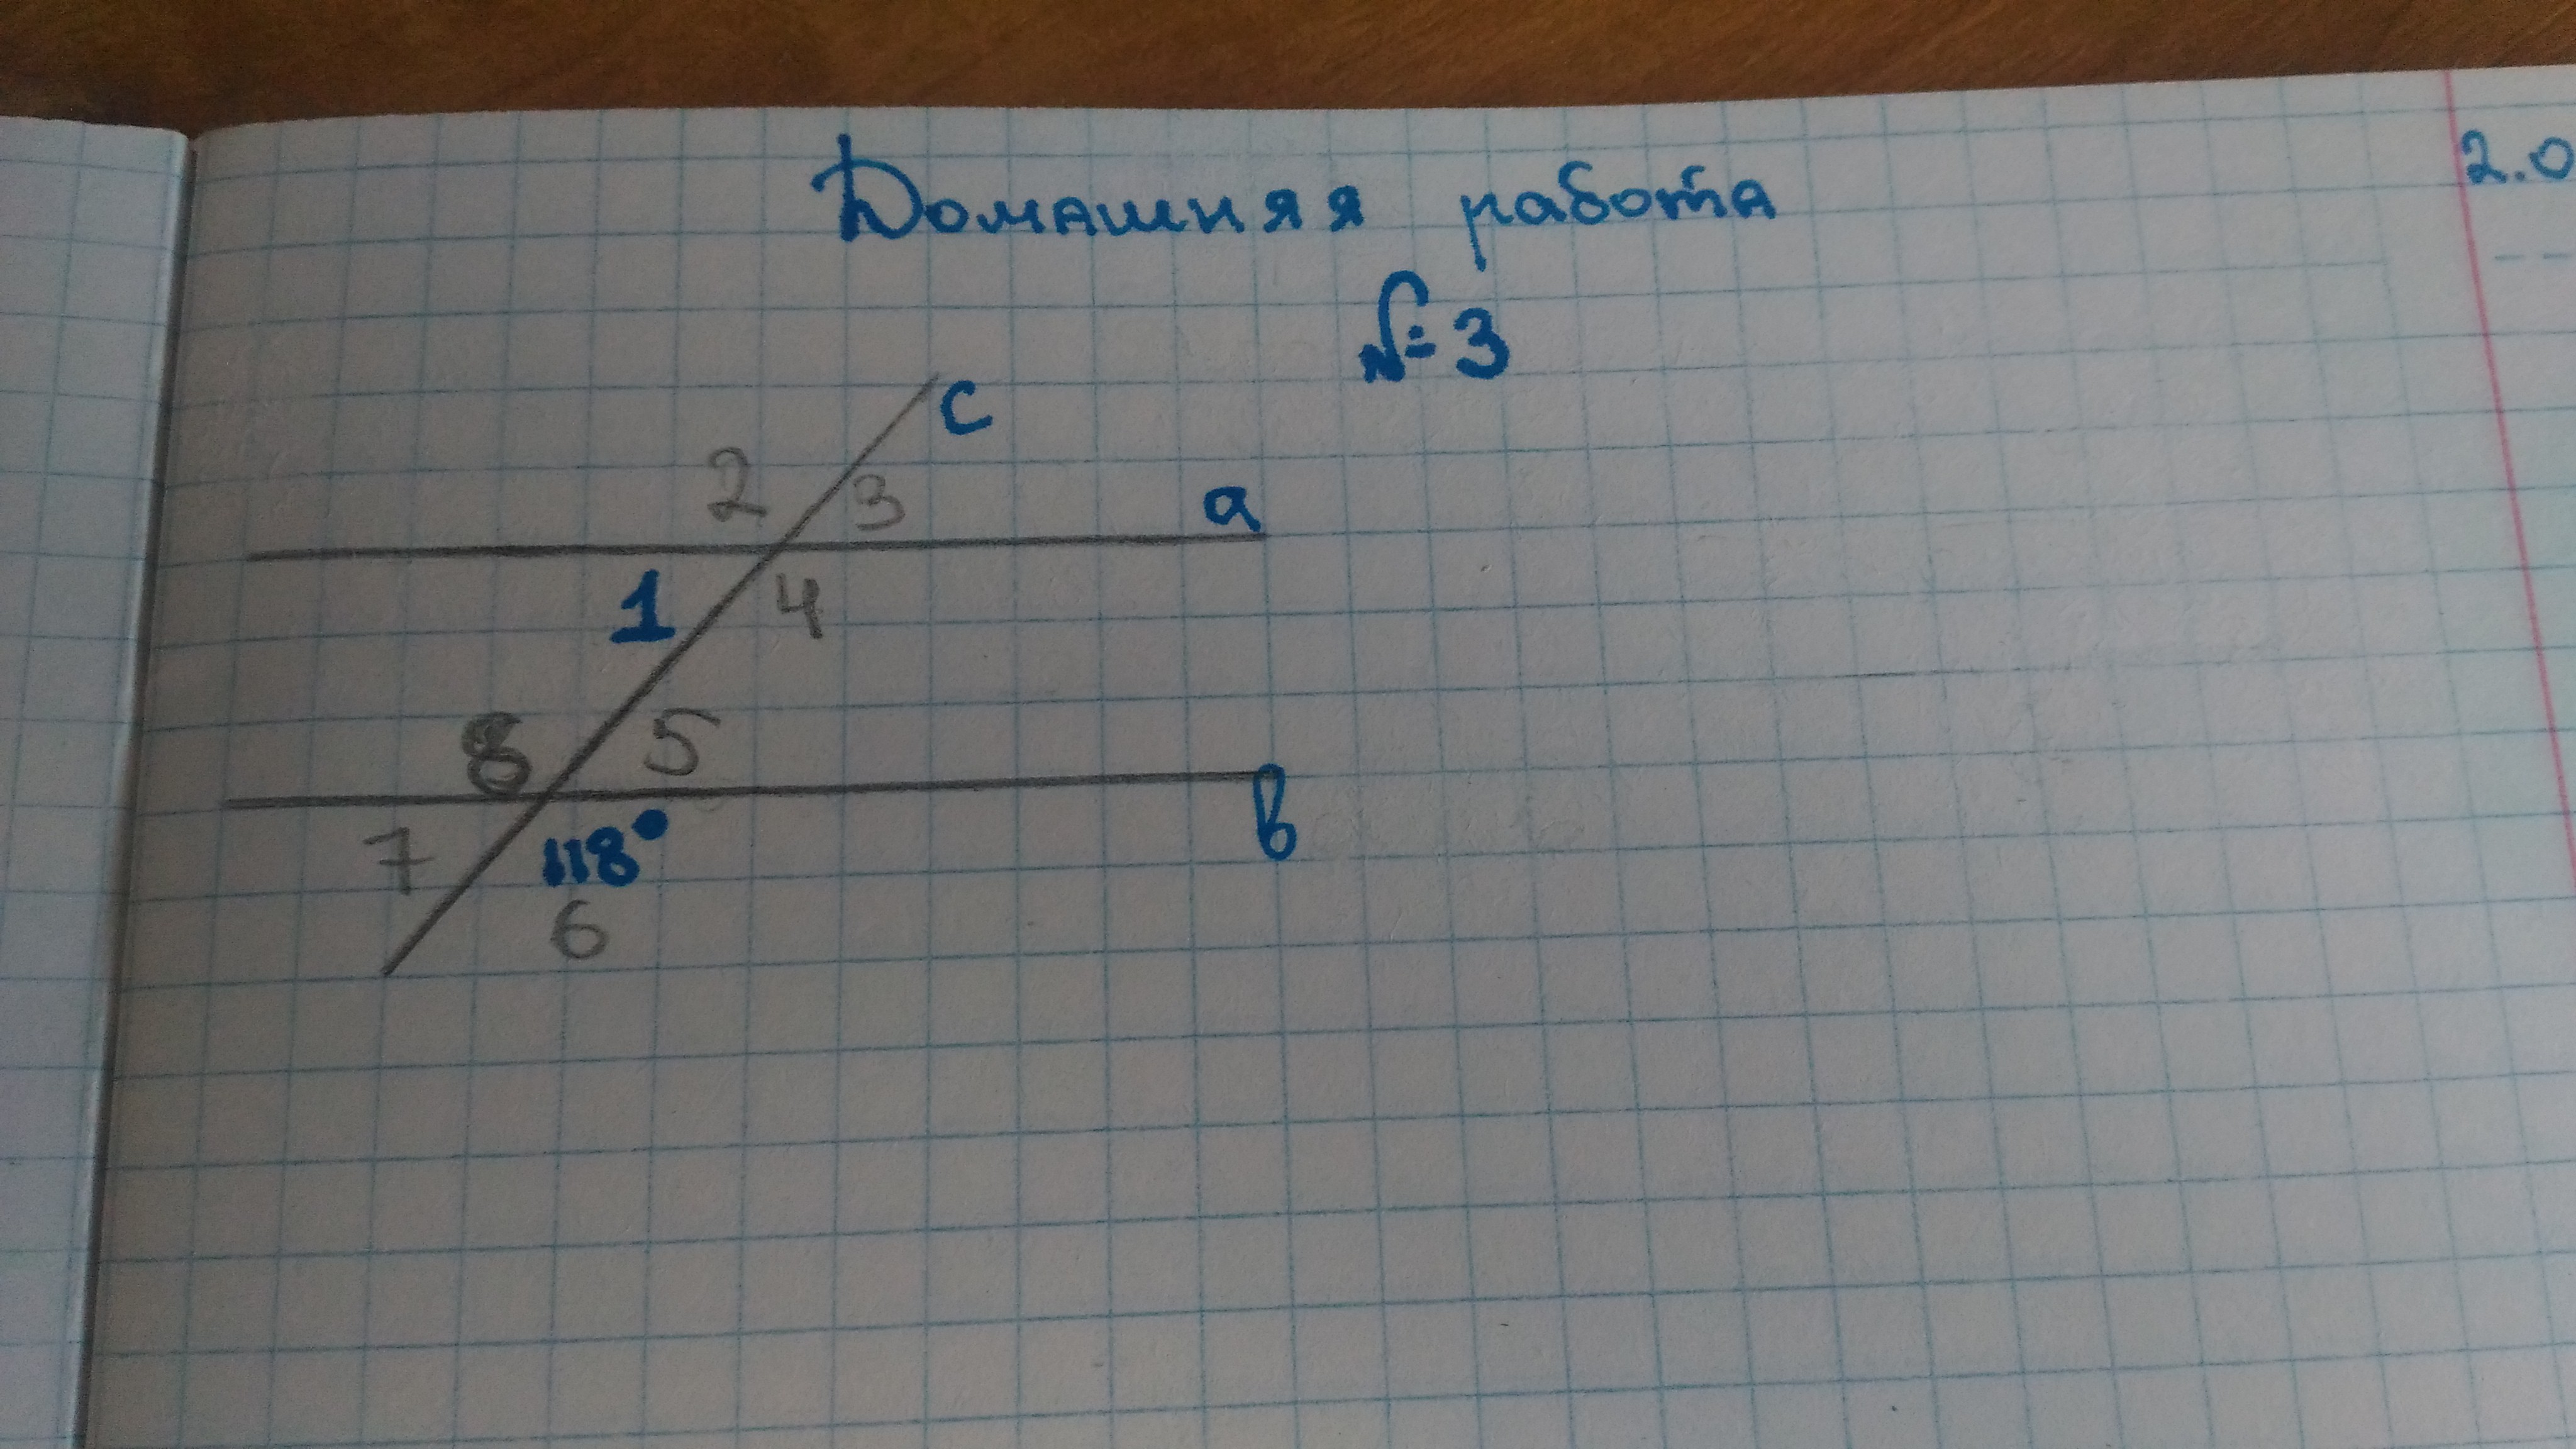 Домашняя работа
2.0
№ 3
c
2 3
a
1 4
8 5
в
7 118°
6